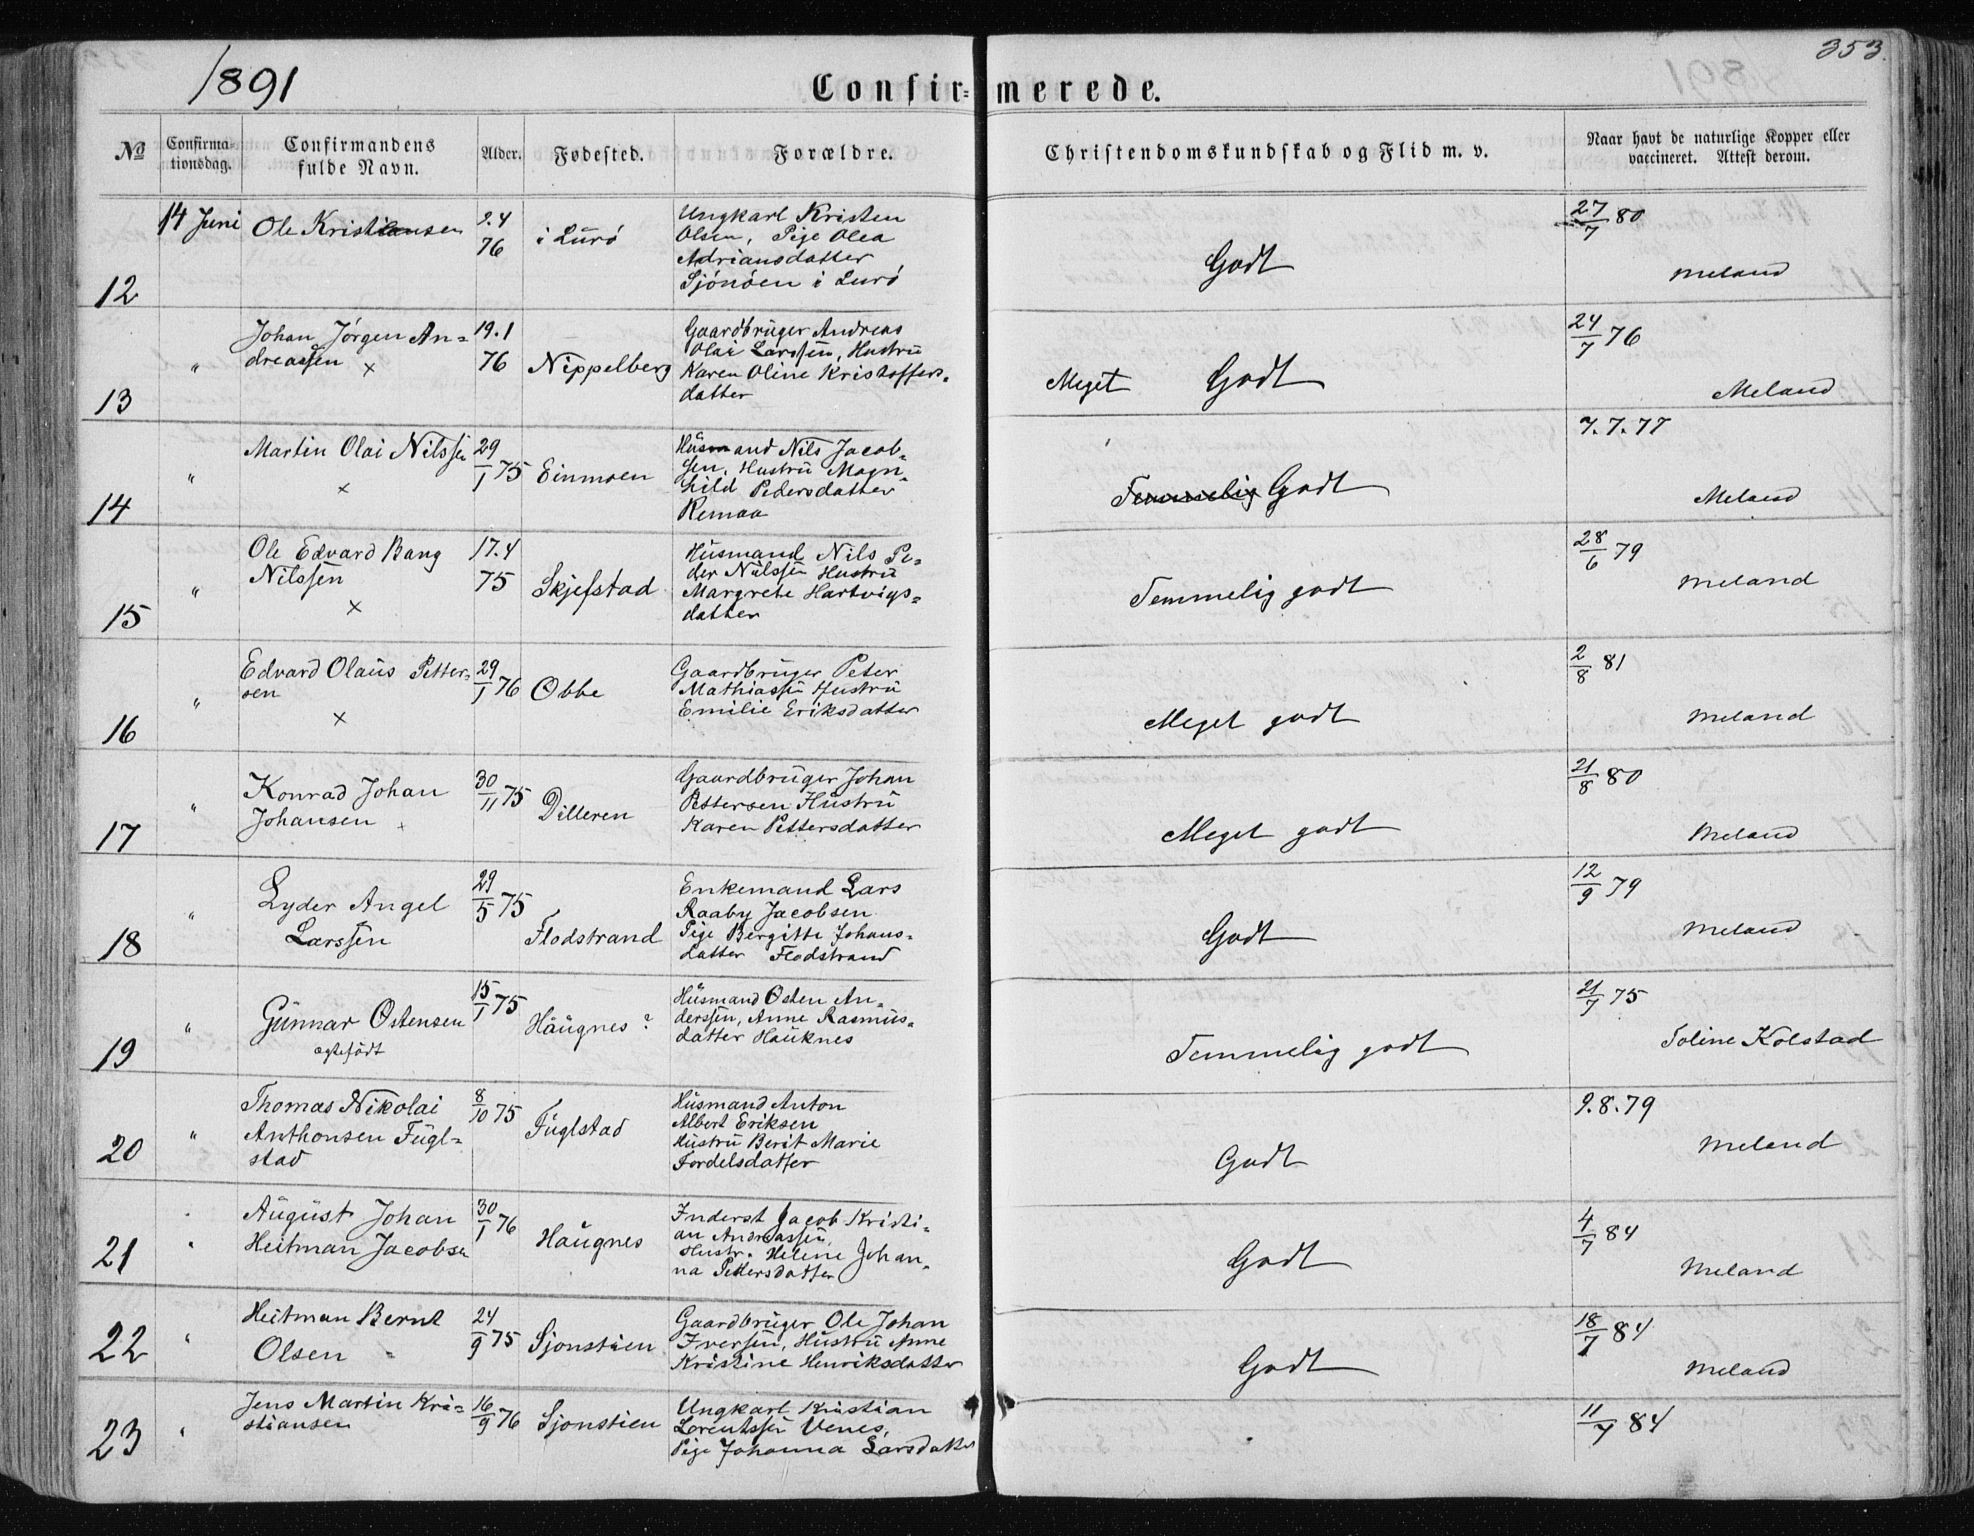 1891
Confirmerede.
353.
No
Confirmationsdag.
Confirmandens fulde Navn.
Alder.
Fødested.
Forældre.
Christendomskundskab og Flid m. v.
Naar havt de naturlige Kopper eller vaccineret. Attest derom.
12
14 Juni
Ole Kristiansen
2.4
76
i Lurø
Ungkarl Kristen
Olsen, Pige Olea
Adriansdatter
Sjónøen i Lurø
Godt
27/7 80
Meland
13
"
Johan Jørgen An=
dreassen ×
19.1
76
Nippelberg
Gaardbruger Andreas
Olai Larssen, Hustru
Karen Oline Kristoffers=
datter
Meget Godt
24/7 76
Meland
14
"
Martin Olai Nilssen
×
29/1 75
Einmoen
Husmand Nils Jacob=
sen, Hustru Magn=
hild Pedersdatter
Remaa
Temmelig Godt
7.7.77
Meland
15
"
Ole Edvard Bang
Nilssen
×
17.4
75
Skjefstad
Husmand Nils Pe=
der Nilssen Hustru
Margrete Hartvigs=
datter
Temmelig godt
28/6 79
Meland
16
"
Edvard Olaus Petter=
sen
×
29/1 76
Obbe
Gaardbruger Peter
Mathiassen Hustru
Emilie Eriksdatter
Meget godt
2/8 81
Meland
17
"
Konrad Johan
Johansen ×
30/11 75
Dilleren
Gaardbruger Johan
Pettersen Hustru
Karen Pettersdatter
Meget godt
21/8 80
Meland
18
"
Lyder Angel
Larssen
29/5 75
Flodstrand
Enkemand Lars
Raaby Jacobsen
Pige Bergitte Johans=
datter Flodstrand
Godt
12/9 79
Meland
19
"
Gunnar Ostensen
ægtefødt
15/1 75
Haugnes?
Husmand Osten An=
derssen, Anne Rasmus=
datter Hauknes
Temmelig godt
21/7 75
Toline Kolstad
20
"
Thomas Nikolai
Anthonsen Fugl=
stad
8/10 75
Fuglstad
Husmand Anton
Albert Eriksen
Hustru Berit Marie
Tordelsdatter
Godt
9.8.79
Meland
21
"
August Johan
Heitman Jacobsen
30/1 76
Haugnes
Inderst Jacob Kristi=
an Andreassen,
Hustr. Helene Johan=
na Pettersdatter
Godt
4/7 84
Meland
22
"
Heitman Bernt
Olsen
24/9 75
Sjonstien
Gaardbruger Ole Johan
Iversen, Hustru Anne
Kristine Henriksdatter
Godt
18/7 84
Meland
23
"
Jens Martin Kri=
stiansen
16/9 76
Sjonstien
Ungkarl Kristian
Lorentssen Venes,
Pige Johanna Larsdatter
11/7 84